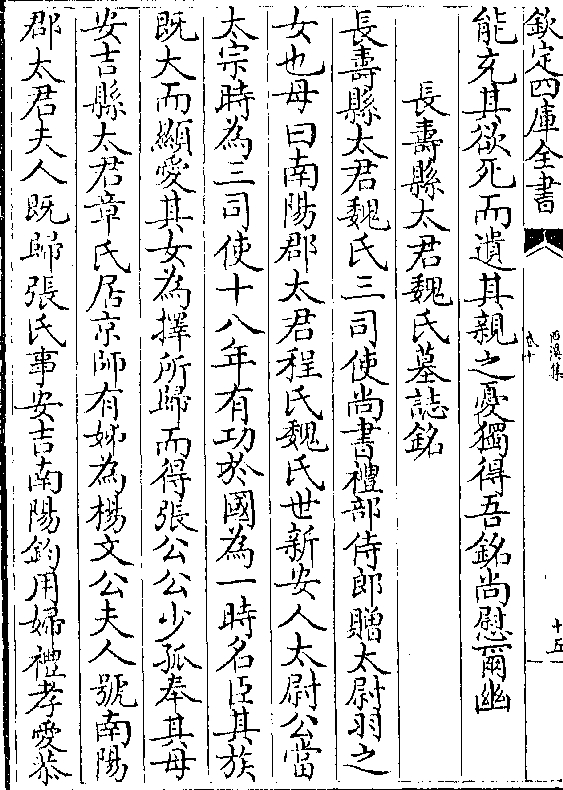 欽定四庫全書
西溪集
卷十
十五
能充其欲死而遺其親之憂獨得吾銘尚慰爾幽
長壽縣太君魏氏墓誌銘
長壽縣太君魏氏三司使尚書禮部侍郎贈太尉羽之
女也母曰南陽郡太君程氏魏氏世新安人太尉公當
太宗時為三司使十八年有功於國為一時名臣其族
既大而顯愛其女為擇所歸而得張公公少孤奉其母
安吉縣太君章氏居京師有姊為楊文公夫人號南陽
郡太君夫人既歸張氏事安吉南陽鈞用婦禮孝愛恭